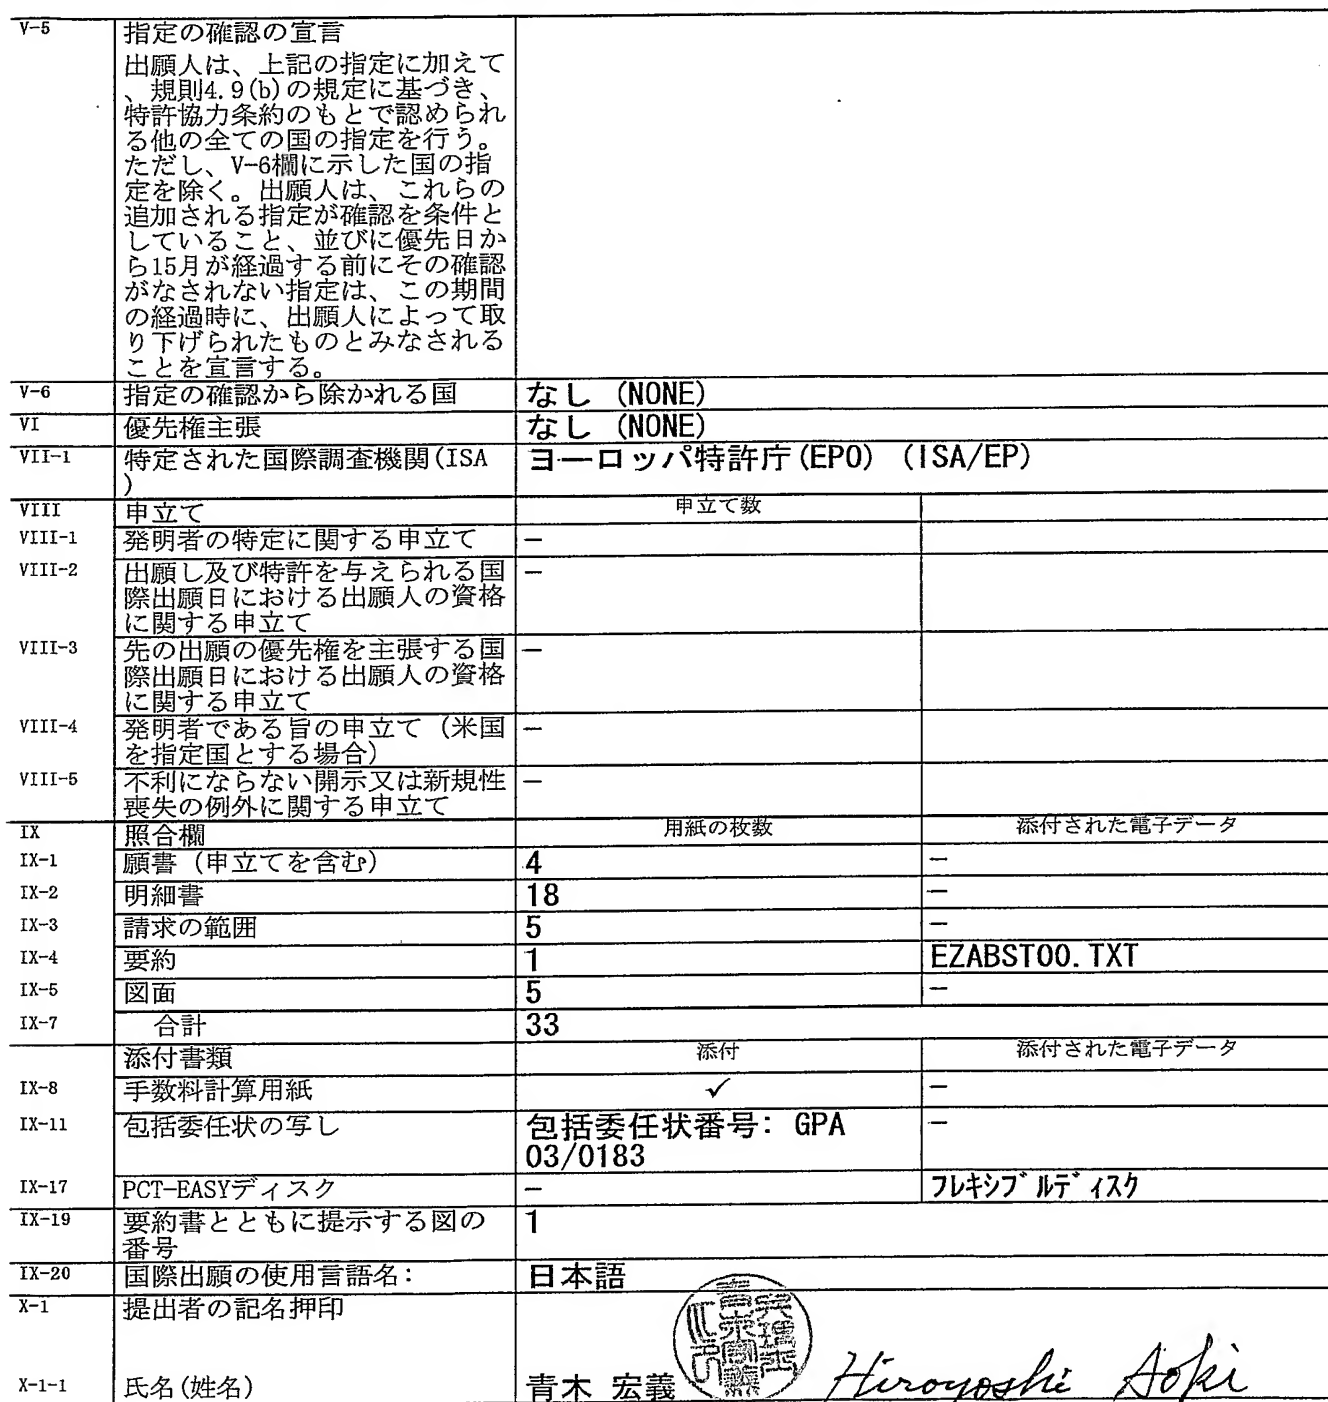 V-5 指定の確認の宣言
出願人は、上記の指定に加えて
、規則4.9(b)の規定に基づき、
特許協力条約のもとで認められ
る他の全ての国の指定を行う。
ただし、V-6欄に示した国の指
定を除く。出願人は、これらの
追加される指定が確認を条件と
していること、並びに優先日か
ら15月が経過する前にその確認
がなされない指定は、この期間
の経過時に、出願人によって取
り下げられたものとみなされる
ことを宣言する。
V-6 指定の確認から除かれる国 なし (NONE)
VI 優先権主張 なし (NONE)
VII-1 特定された国際調査機関(ISA ヨーロッパ特許庁(EPO) (ISA/EP)
)
VIII 申立て 申立て数
VIII-1 発明者の特定に関する申立て -
VIII-2 出願し及び特許を与えられる国 -
際出願日における出願人の資格
に関する申立て
VIII-3 先の出願の優先権を主張する国 -
際出願日における出願人の資格
に関する申立て
VIII-4 発明者である旨の申立て (米国 -
を指定国とする場合)
VIII-5 不利にならない開示又は新規性 -
喪失の例外に関する申立て
IX 照合欄 用紙の枚数 添付された電子データ
IX-1 願書 (申立てを含む) 4 -
IX-2 明細書 18 -
IX-3 請求の範囲 5 -
IX-4 要約 1 EZABST00.TXT
IX-5 図面 5 -
IX-7 合計 33
添付書類 添付 添付された電子データ
IX-8 手数料計算用紙 ✓ -
IX-11 包括委任状の写し 包括委任状番号: GPA -
03/0183
IX-17 PCT-EASYディスク - フレキシブルディスク
IX-19 要約書とともに提示する図の 1
番号
IX-20 国際出願の使用言語名: 日本語
X-1 提出者の記名押印
X-1-1 氏名(姓名) 青木 宏義 Hiroyoshi Aoki